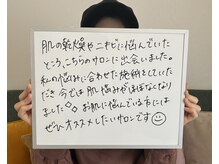 肌の乾燥やニキビに悩んでいた
ところ、こちらのサロンに出会いました。
私の悩みに合わせた施術をしていた
だき今では肌悩みがほぼなくなり
ました◇ お肌に悩んでいる方には
ぜひオススメしたいサロンです☺